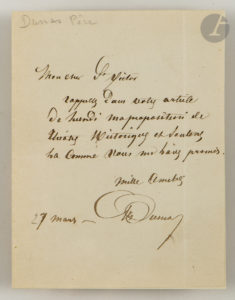 Dumas Père
Mon cher St Victor
rappelez dans votre article
de lundi ma proposition de
et
la comme vous me l'avez promis.
mille amitiés
Dumas
27 mars